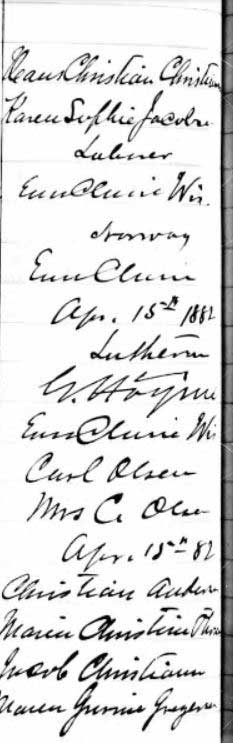 Hans Christian Christian
Karen Sophie Jacobs
Laborer
Eau Claire Wis.
Norway
Eau Claire
Apr. 15th 1882
Lutheran
G. Hoyme
Eau Claire Wis
Carl Olsen
Mrs C. Olsen
Apr. 15th 82
Christian Anders
Maren Christine
Jacob Christians
Maren Gregers